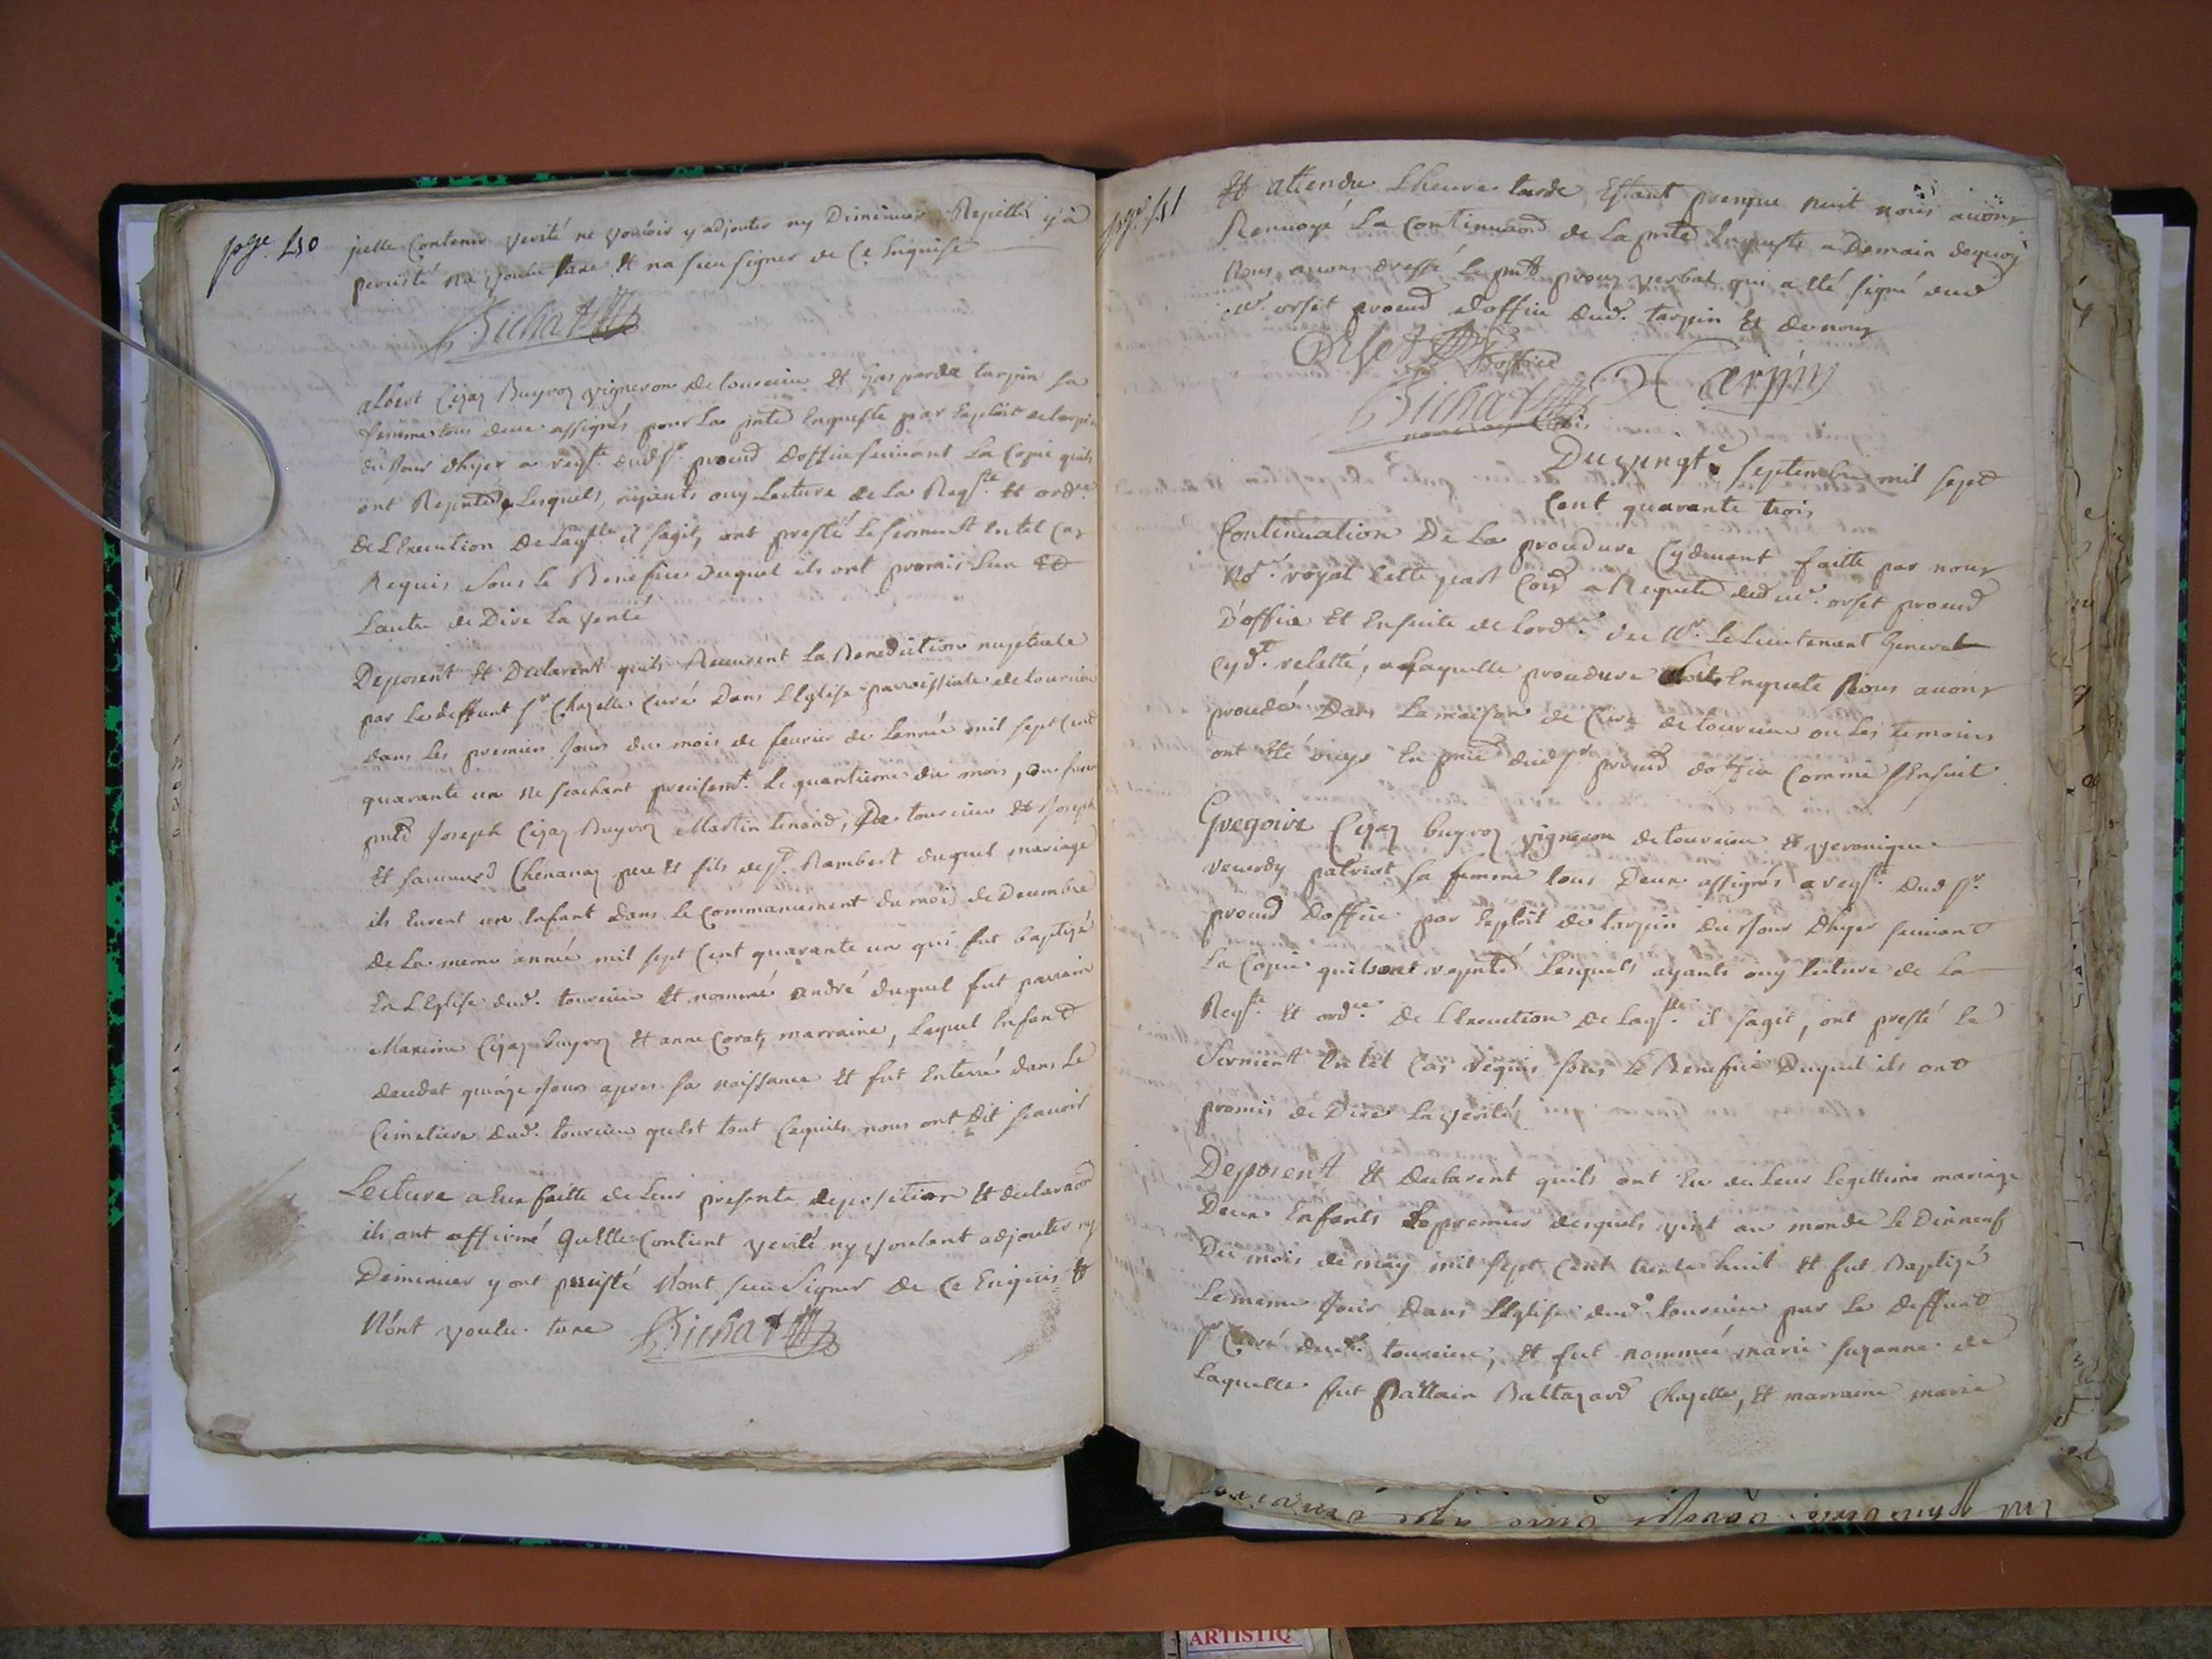 page 450
jcelle Contenir verité ne vouloir y adjouter ny Diminuer Repetté y à
percisté na voulu taxe Et na sceu signer de Ce Enquise
Bichat
albert Cizaz Buyroz vigneron de tourcieu Et Gasparde tarpin sa
femme tous deux assignés pour La pnte Enqueste par Exploit de tarpin
du Jour dhyer a reqste dud sr proeud Doffice suivant La Copie quils
ont Repntée, Lesquels, ayants ouy Lecture de La Reqste Et ordce
de LExecution de Laqlle il sagit, ont presté le serment En tel Cas
Requis sous le Benefice duquel ils ont promis Lun Et
Lautre de Dire La verité
Deposent Et Declarent quils Receurent La Benediction nuptiale
par le deffunt sr Chazelle Curé dans LEglise parroissiale de tourcieu
dans les premiers Jours du mois de fevrier de Lannée mil sept Cent
quarante un ne scachant precisemt. Le quantieme du mois, ou furent
pnts Joseph Cizaz Buyroz Martin tenand, De tourcieu Et Joseph
Et Chenavaz pere Et fils de st. Rambert duquel mariage
ils Eurent un Enfant dans le Commancement du mois de Decembre
de La meme année mil sept Cent quarante un qui fut baptizé
En LEglise dud. tourcieu Et nommé andré duquel fut parrain
Maxime Cizaz buyroz Et anne Coraz, marraine, Lequel Enfant
deceda quinze Jours apres sa naissance Et fut Enterré dans Le
Cimetiere dud. tourcieu quest tout Cequils nous ont dit scavoir
Lecture a Eux faitte de Leur presente deposition Et declaraon
ils ont affirmé quElle Contient verité ny voulant adjouter ny
Diminuer y ont percisté Nont sceu signer de Ce Enquis Et
Nont voulu taxe Bichat
page 451
Et attendu Lheure tarde Estant presque nuit nous avons
Renvoyé La Continuaon de La pnte Enqueste a Demain dequoy
Nous avons dressé le pnt proces verbal qui a Eté signé dud
me. orset proeud doffice dud. tarpin Et de nous
Orset doffice
Bichat Tarpin
Du vingte. Septembre mil sept
Cent quarante trois
Continuation De La procedure Cydevant faitte par nous
No.re royal Cette part Com.re a Requete dud me. orset proeud
D'office Et Ensuite de Lordce. de Mr. Le Lieutenant General
Cydt. relatté, a Laquelle procedure Enquete Nous avons
procedé Dans La maison de Cure de tourcieu ou Les temoins
ont Eté ouys En pnce dud sr proeud doffice Comme sEnsuit
Gregoire Cizaz buyroz vigneron de tourcieu Et veronique
venerdy patriot sa femme tous Deux assignés a reqste. dud sr.
proeud Doffice par Exploit de tarpin du Jour Dhyer suivant
La Copie quils ont repnté Lesquels ayants ouy Lecture de La
Reqste. Et ordce. de LExecution de Laqlle. il sagit, ont presté Le
Serment En tel Cas requis sous le Benefice Duquel ils ont
promis de Dire La verité
Deposent Et declarent quils ont Eu de Leur Legittime mariage
Deux Enfants Le premier desquels vint au monde le Dixneuf
Du mois de may mil sept Cent trente huit Et fut Baptizé
Le meme Jour dans LEglise dud. tourcieu par le deffunt
sr Curé dudt. tourcieu, Et fut nommée marie suzanne de
Laquelle fut Parrain Baltazard Chazelle, Et marraine marie
ARTISTIQ